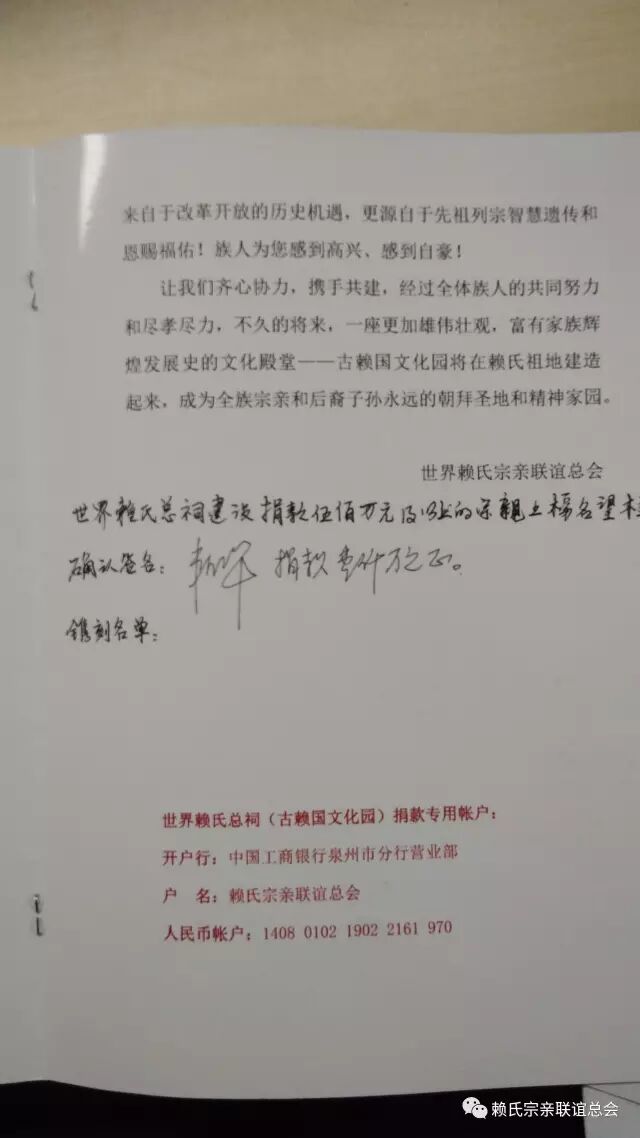 来自于改革开放的历史机遇，更源自于先祖列宗智慧遗传和
恩赐福佑！族人为您感到高兴、感到自豪！
让我们齐心协力，携手共建，经过全体族人的共同努力
和尽孝尽力，不久的将来，一座更加雄伟壮观，富有家族辉
煌发展史的文化殿堂——古赖国文化园将在赖氏祖地建造
起来，成为全族宗亲和后裔子孙永远的朝拜圣地和精神家园。
世界赖氏宗亲联谊总会
世界赖氏总祠建设捐款伍佰万元及以上的宗亲上榜名望
确认签名： 捐款壹仟万元正。
镌刻名单：
世界赖氏总祠（古赖国文化园）捐款专用帐户：
开户行：中国工商银行泉州市分行营业部
户 名：赖氏宗亲联谊总会
人民币帐户：1408 0102 1902 2161 970
赖氏宗亲联谊总会